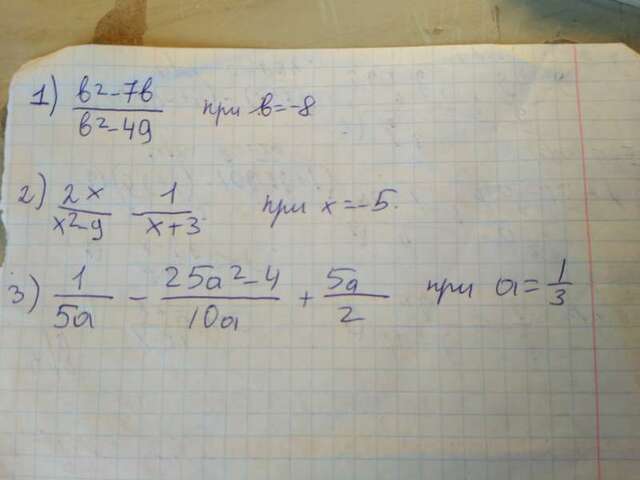 1) (b²-7b)/(b²-49) при b=-8
2) 2x/(x²-9) - 1/(x+3) при x=-5.
3) 1/(5a) - (25a²-4)/(10a) + 5a/2 при a=1/3